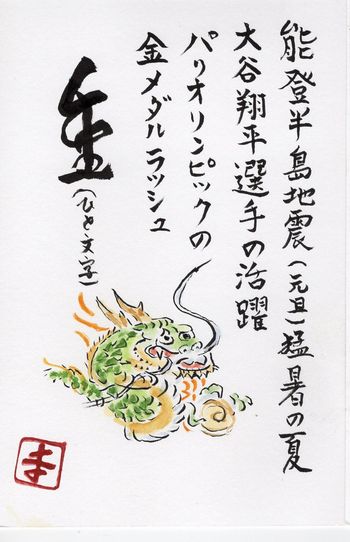 能登半島地震(元旦)猛暑の夏
大谷翔平選手の活躍
パリオリンピックの
金メダルラッシュ
金
(ひと文字)